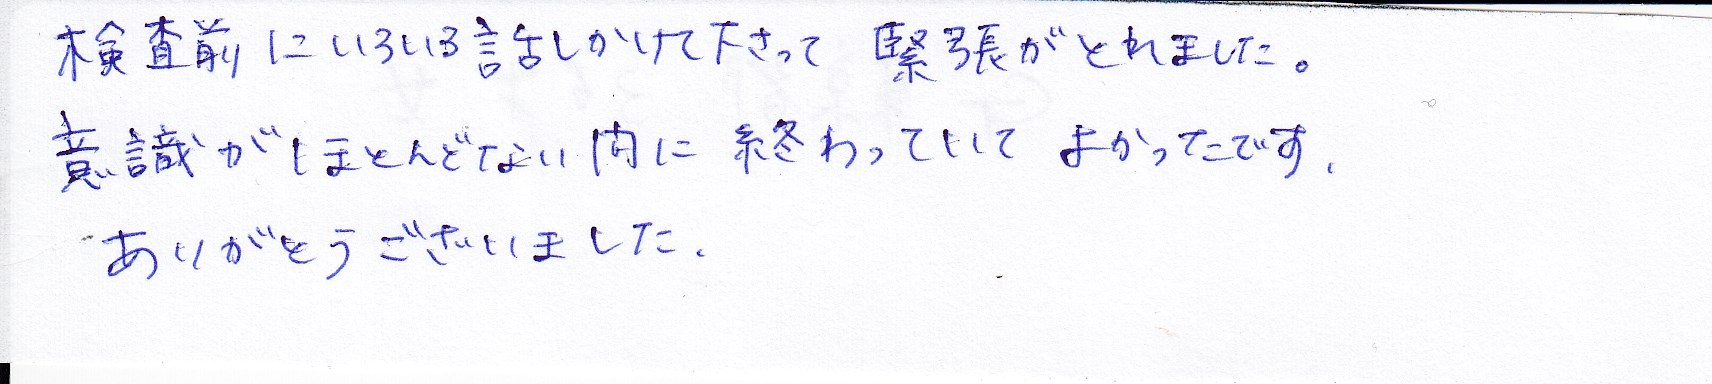 検査前にいろいろ話しかけて下さって 緊張がとれました。
意識がほとんどない内に 終わっていて よかったです.
ありがとうございました.